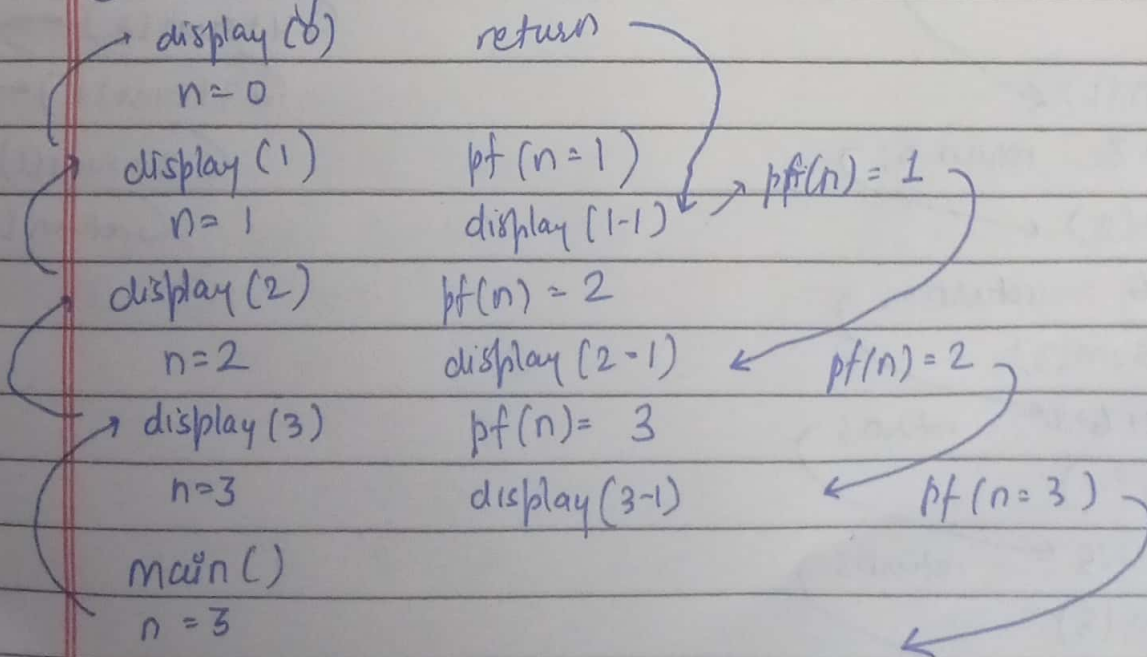 display (0) return
n = 0
display (1) pf (n = 1)
pf(n) = 1
n = 1 display (1-1)
display (2) pf(n) = 2
n = 2 display (2-1) pf(n) = 2
display (3) pf(n) = 3
n = 3 display (3-1) pf (n = 3)
main ()
n = 3